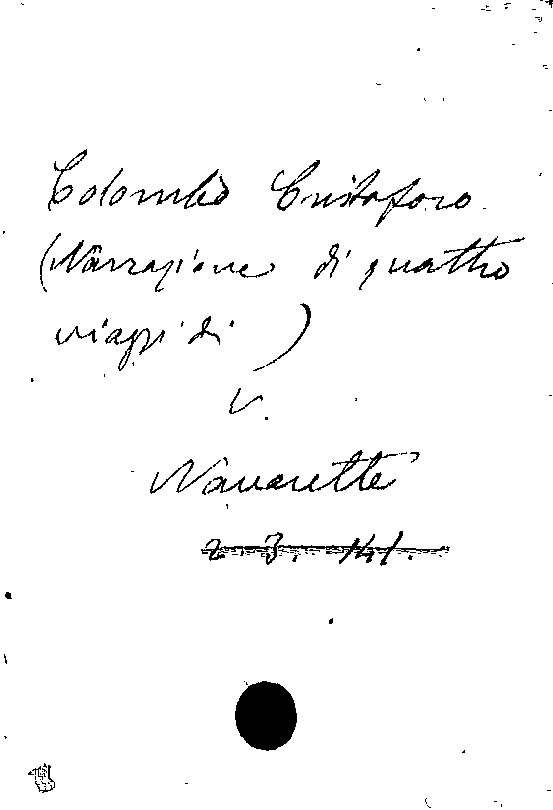 Colombo Cristoforo
(Narrazione di quattro
viaggi di )
V.
Navarette
2. 3. 141.